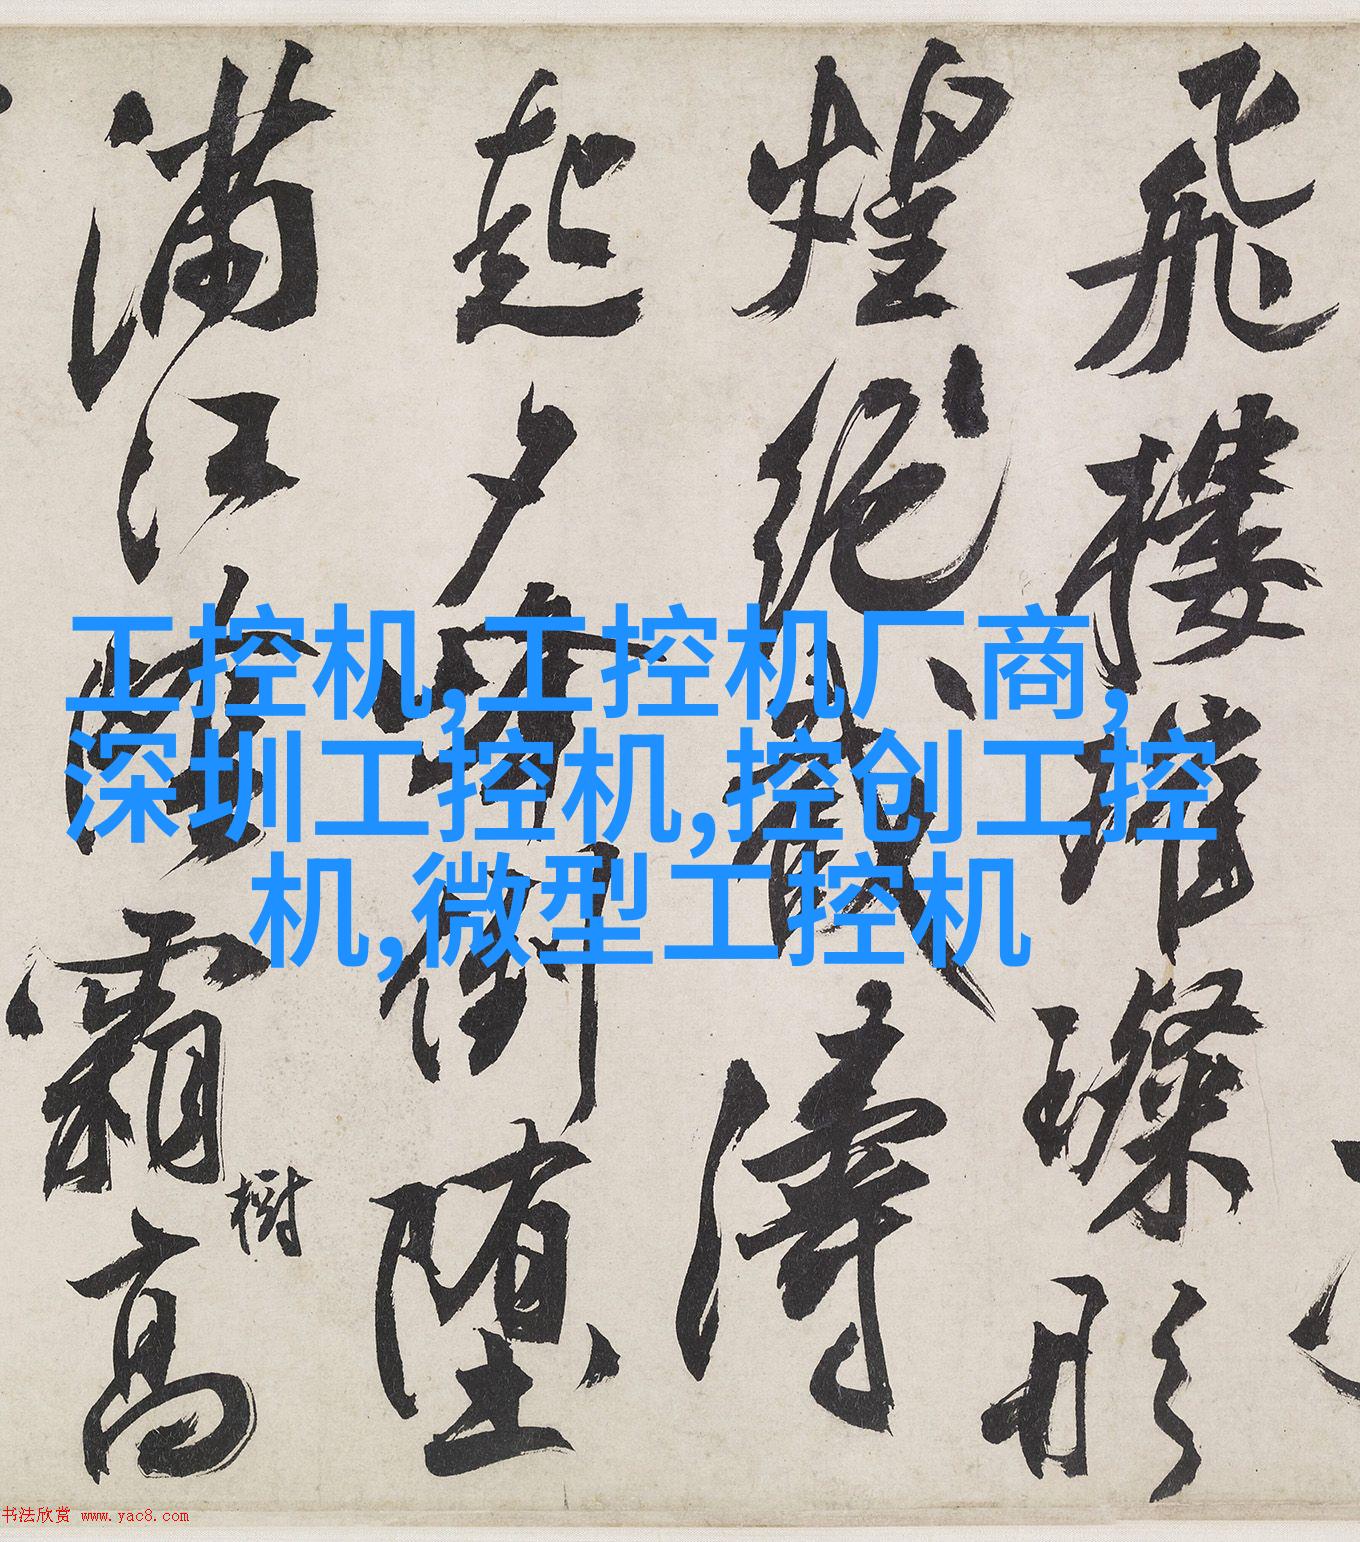 工控机,工控机厂商,
深圳工控机,控创工控
机,微型工控机
飛樓璀璨形
煌絶觀濤
起夕倒墮
滿江霜高
樹
书法欣赏 www.yac8.com